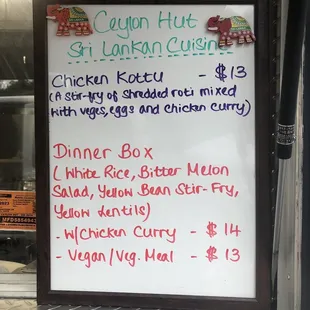 Ceylon Hut
Sri Lankan Cuisine
Chicken Kottu - $13
(A stir-fry of shredded roti mixed
with veges, eggs and chicken curry)
Dinner Box
(White Rice, Bitter Melon
Salad, Yellow Bean Stir-Fry,
Yellow lentils)
- W/Chicken Curry - $14
- Vegan/Veg. Meal - $13